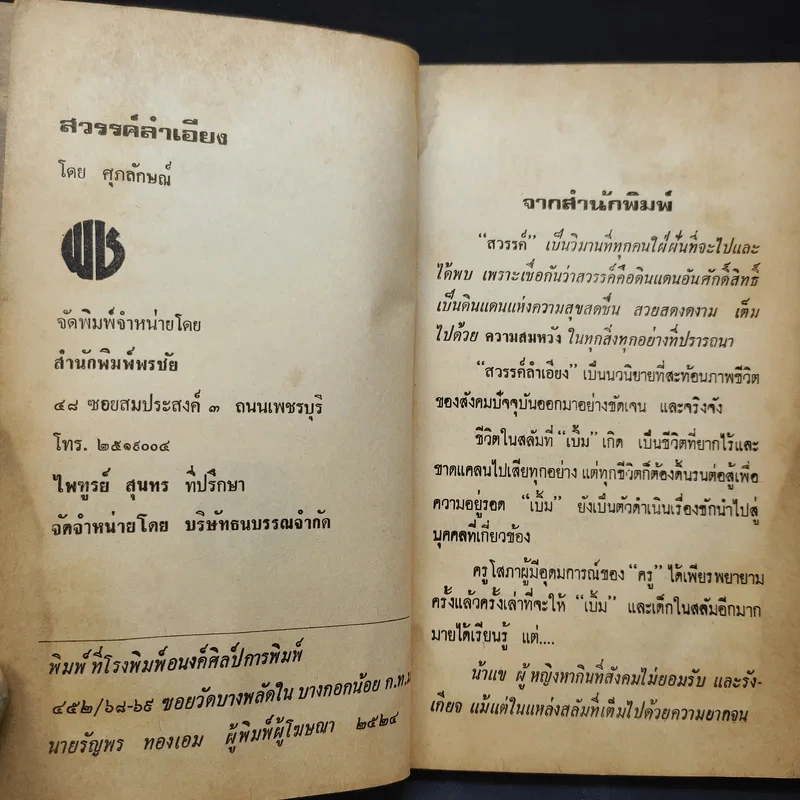 สวรรค์ลำเอียง
โดย ศุภลักษณ์
พช
จัดพิมพ์จำหน่ายโดย
สำนักพิมพ์พรชัย
๔๘ ซอยสมประสงค์ ๓ ถนนเพชรบุรี
โทร. ๒๕๑๙๐๐๔
ไพฑูรย์ สุนทร ที่ปรึกษา
จัดจำหน่ายโดย บริษัทธนบรรณจำกัด
พิมพ์ที่โรงพิมพ์อนงค์ศิลป์การพิมพ์
๔๕๒/๖๘-๖๙ ซอยวัดบางพลัดใน บางกอกน้อย ก.ท.ม
นายรัญพร ทองเอม ผู้พิมพ์ผู้โฆษณา ๒๕๒๔
จากสำนักพิมพ์
“สวรรค์” เป็นวิมานที่ทุกคนใฝ่ฝันที่จะไปและ
ได้พบ เพราะเชื่อกันว่าสวรรค์คือดินแดนอันศักดิ์สิทธิ์
เป็นดินแดนแห่งความสุขสดชื่น สวยสดงดงาม เต็ม
ไปด้วย ความสมหวัง ในทุกสิ่งทุกอย่างที่ปรารถนา
“สวรรค์ลำเอียง” เป็นนวนิยายที่สะท้อนภาพชีวิต
ของสังคมปัจจุบันออกมาอย่างชัดเจน และจริงจัง
ชีวิตในสลัมที่ “เบิ้ม” เกิด เป็นชีวิตที่ยากไร้และ
ขาดแคลนไปเสียทุกอย่าง แต่ทุกชีวิตก็ต้องดิ้นรนต่อสู้เพื่อ
ความอยู่รอด “เบิ้ม” ยังเป็นตัวดำเนินเรื่องชักนำไปสู่
บุคคลที่เกี่ยวข้อง
ครูโสภาผู้มีอุดมการณ์ของ “ครู” ได้เพียรพยายาม
ครั้งแล้วครั้งเล่าที่จะให้ “เบิ้ม” และเด็กในสลัมอีกมาก
มายได้เรียนรู้ แต่....
น้าแข ผู้หญิงหากินที่สังคมไม่ยอมรับ และรัง-
เกียจ แม้แต่ในแหล่งสลัมที่เต็มไปด้วยความยากจน